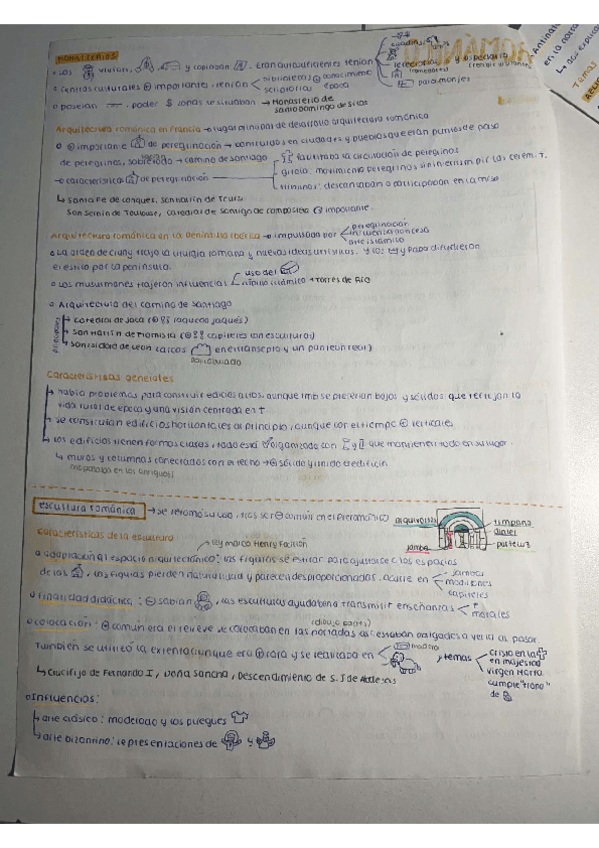 MONASTERIOS
Los vivían, y copiaban. Eran autosuficientes tenían
y hospedería
para monjes
Centros culturales importante, tenían bibliotecas conocimiento
scriptoriu época
poseían poder $ zonas se situaban → Monasterio de
Santo Domingo de Silos
Arquitectura románica en Francia → lugar principal de desarrollo arquitectura románica
importante de peregrinación → construidas en ciudades y pueblos que eran puntos de paso
de peregrinos, sobretodo → camino de Santiago facilitaba la circulación de peregrinos
girola: movimiento peregrinos sin interrumpir las cerem. †.
características de peregrinación tribunas: descansaban o participaban en la misa
Santa Fe de Conques, San Martín de Tours
San Sernín de Toulouse, Catedral de Santiago de Compostela importante.
Arquitectura románica en la Península Ibérica → impulsada por peregrinación
influencia francesa
arte islámico
La orden de Cluny trajo la liturgia romana y nuevas ideas artísticas. y los y Papa difundieron
el estilo por la península.
Los musulmanes trajeron influencias uso del
Arquitectura del camino de Santiago
Catedral de Jaca (jaqueces jaqués)
San Martín de Frómista (capiteles con esculturas)
San Isidoro de León (arcos en el transepto y un panteón real)
polilobulado
Características generales
había problemas para construir edificios altos, aunque tmb se preferían bajos y sólidos que reflejan la
vida rural de época y una visión centrada en †
se construían edificios horizontales al principio, aunque con el tiempo verticales
los edificios tienen formas claras, todo está organizado con y que mantienen todo en su lugar.
muros y columnas conectados con el techo → sólido y unido el edificio
(no pasaba en los antiguos)
escultura románica → se retomó su uso, tras ser común en el Prerrománico
arquivoltas
tímpano
dintel
jamba
parteluz
Características de la escultura
ley marco Henry Focillon
adaptación al espacio arquitectónico: las figuras se estiran para ajustarse a los espacios
de las, las figuras pierden naturalidad y parecen desproporcionadas. Ocurre en jambas
modillones
capiteles
Finalidad didáctica: sabían, las esculturas ayudaban a transmitir enseñanzas †
morales
(dibujo partes)
colocación: común era el relieve se colocaban en las portadas así estaban obligados a verla al pasar.
También se utilizó la exenta aunque era rara y se realizaba en madera, temas Cristo en la †
en majestad
Virgen María
cumple "trono"
de
Crucifijo de Fernando I, Doña Sancha, Descendimiento de S. J de
Influencias:
arte clásico: modelado y los pliegues
arte bizantino: representaciones de y